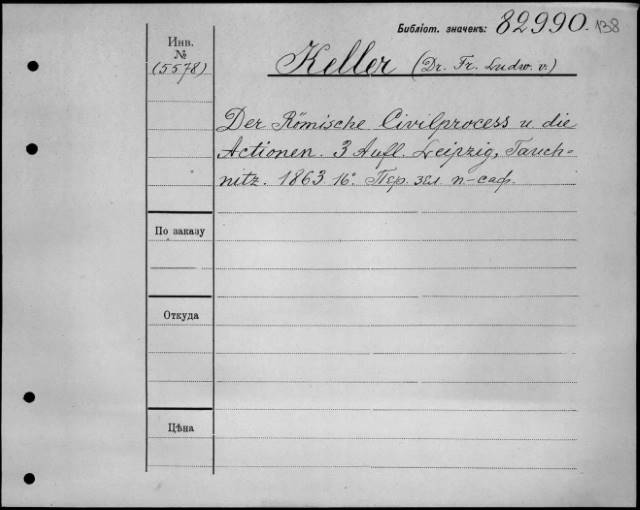 Библіот. значекъ: 82990. 138
Инв.
№
(5578)
Keller (Dr. Fr. Ludw. v.)
Der Römische Civilprocess u. die
Actionen. 3 Aufl. Leipzig, Tauch-
nitz. 1863 16°. Пер. зел. п-саф.
По заказу
Откуда
Цѣна